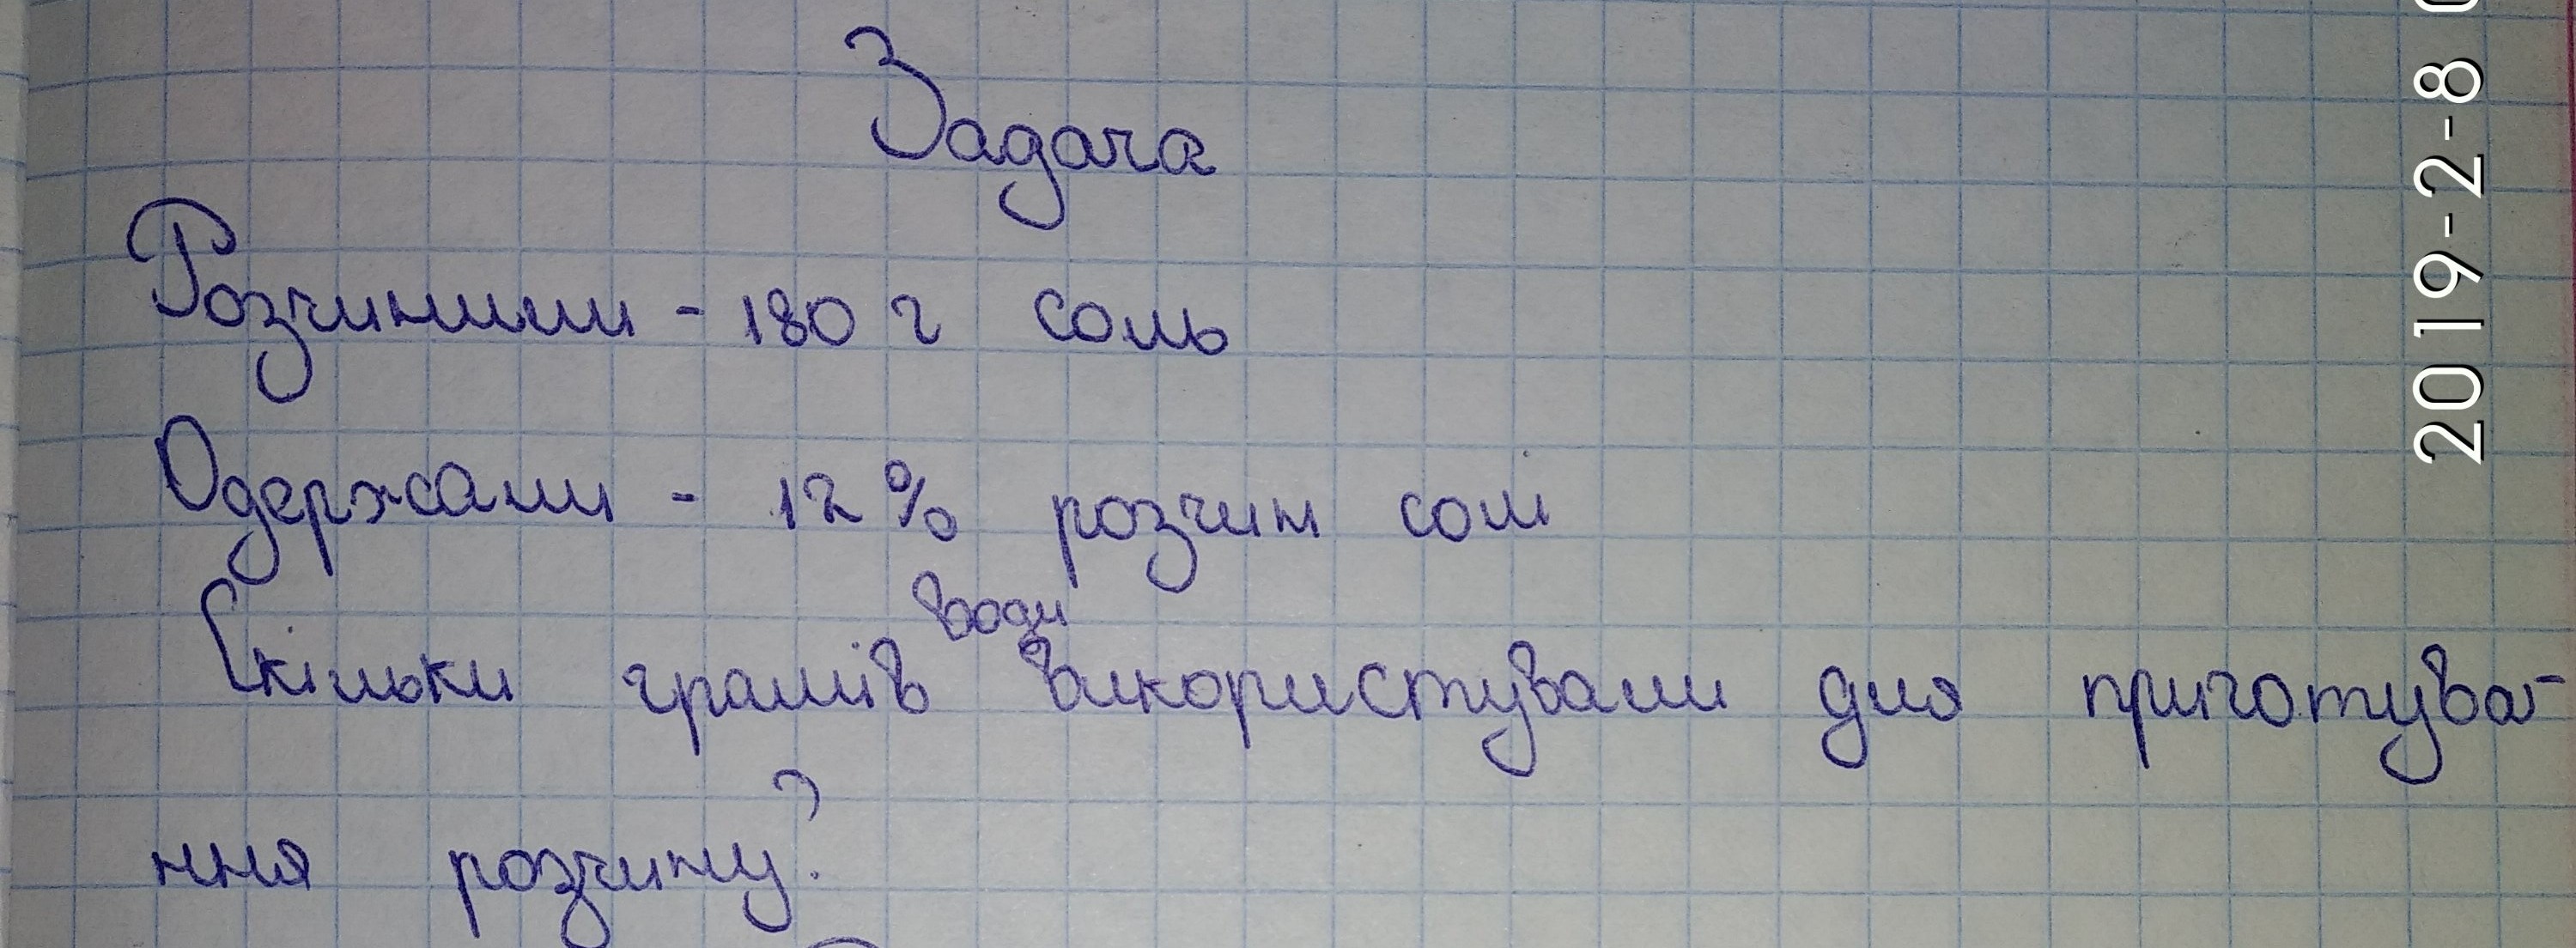 Задача
Розчинили - 180 г соль
Одержали - 12% розчин солі
води
Скільки грамів використували для приготува-
ння розчину?
2019-2-8